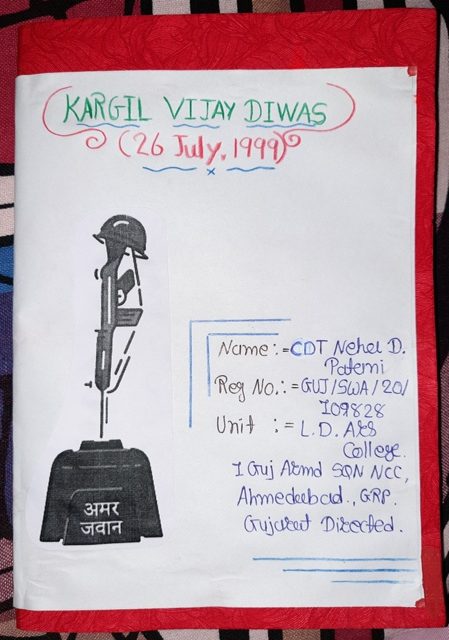 KARGIL VIJAY DIWAS
(26 July, 1999)
Name:=CDT Nehal D.
Patemi
Reg No.:=GUJ/SWA/20/
109828
Unit :=L.D. Arts
College.
1 Guj Armd SQN NCC,
Ahmedabad., GRP.
Gujarat Directed.
अमर
जवान